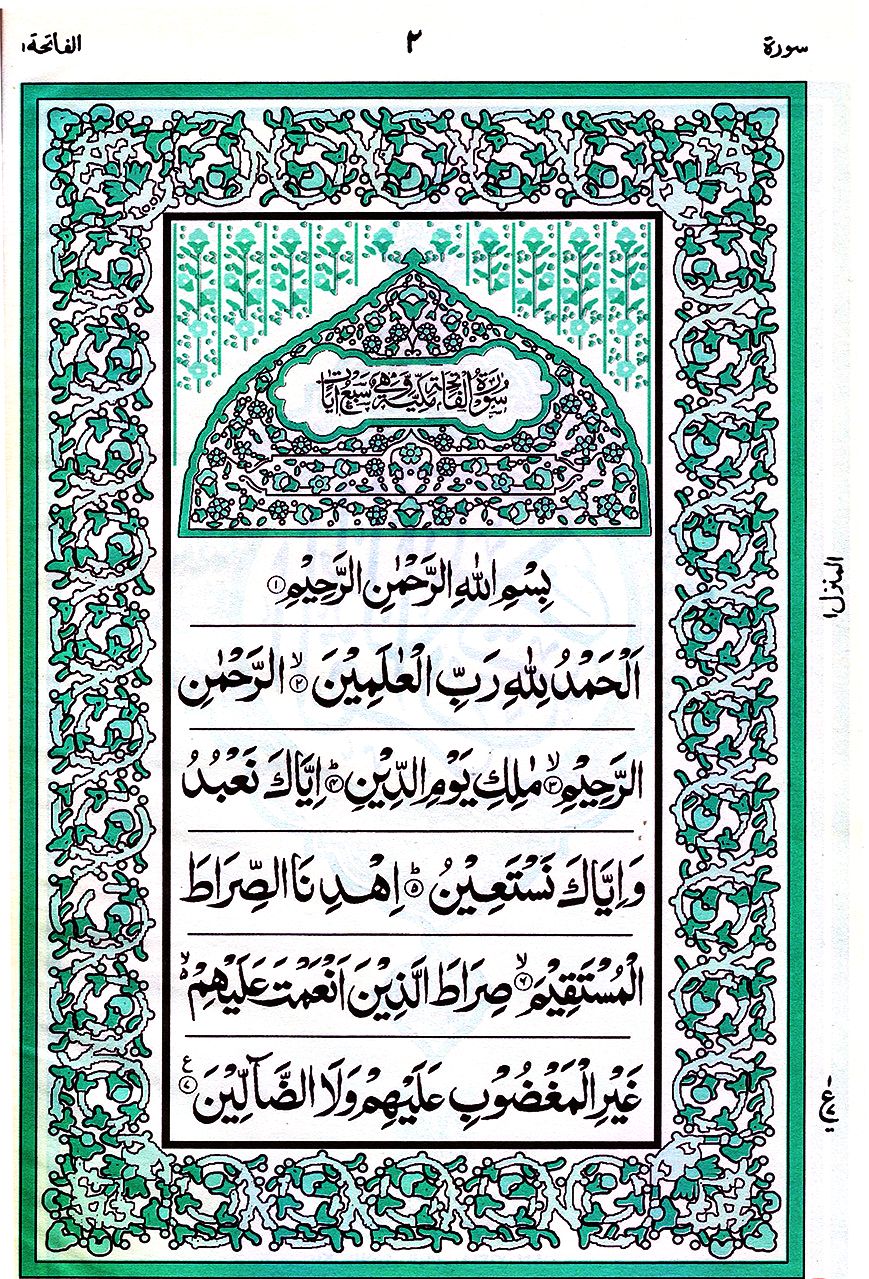 سورة ٢ الفاتحة ١
سُوْرَةُ الْفَاتِحَةِ مَكِّيَّةٌ وَّهِيَ سَبْعُ اٰيَاتٍ
بِسْمِ اللّٰهِ الرَّحْمٰنِ الرَّحِيْمِ ۝١
اَلْحَمْدُ لِلّٰهِ رَبِّ الْعٰلَمِيْنَ ۙ۝٢ الرَّحْمٰنِ
الرَّحِيْمِ ۙ۝٣ مٰلِكِ يَوْمِ الدِّيْنِ ؕ۝٤ اِيَّاكَ نَعْبُدُ
وَ اِيَّاكَ نَسْتَعِيْنُ ؕ۝٥ اِهْدِنَا الصِّرَاطَ
الْمُسْتَقِيْمَ ۙ۝٦ صِرَاطَ الَّذِيْنَ اَنْعَمْتَ عَلَيْهِمْ ۙ
غَيْرِ الْمَغْضُوْبِ عَلَيْهِمْ وَلَا الضَّآلِّيْنَ ۝٧ ع
المنزل ١